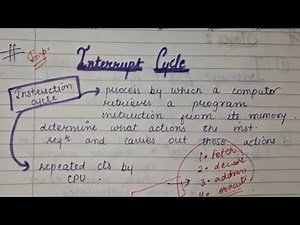 # Imp.
Interrupt Cycle
Instruction
cycle
process by which a computer
retrieves a program
instruction from its memory,
determine what actions the inst.
reqr and carries out those actions.
repeated cts by
CPU.
1. Fetch
2. decode
3. address
4. execute